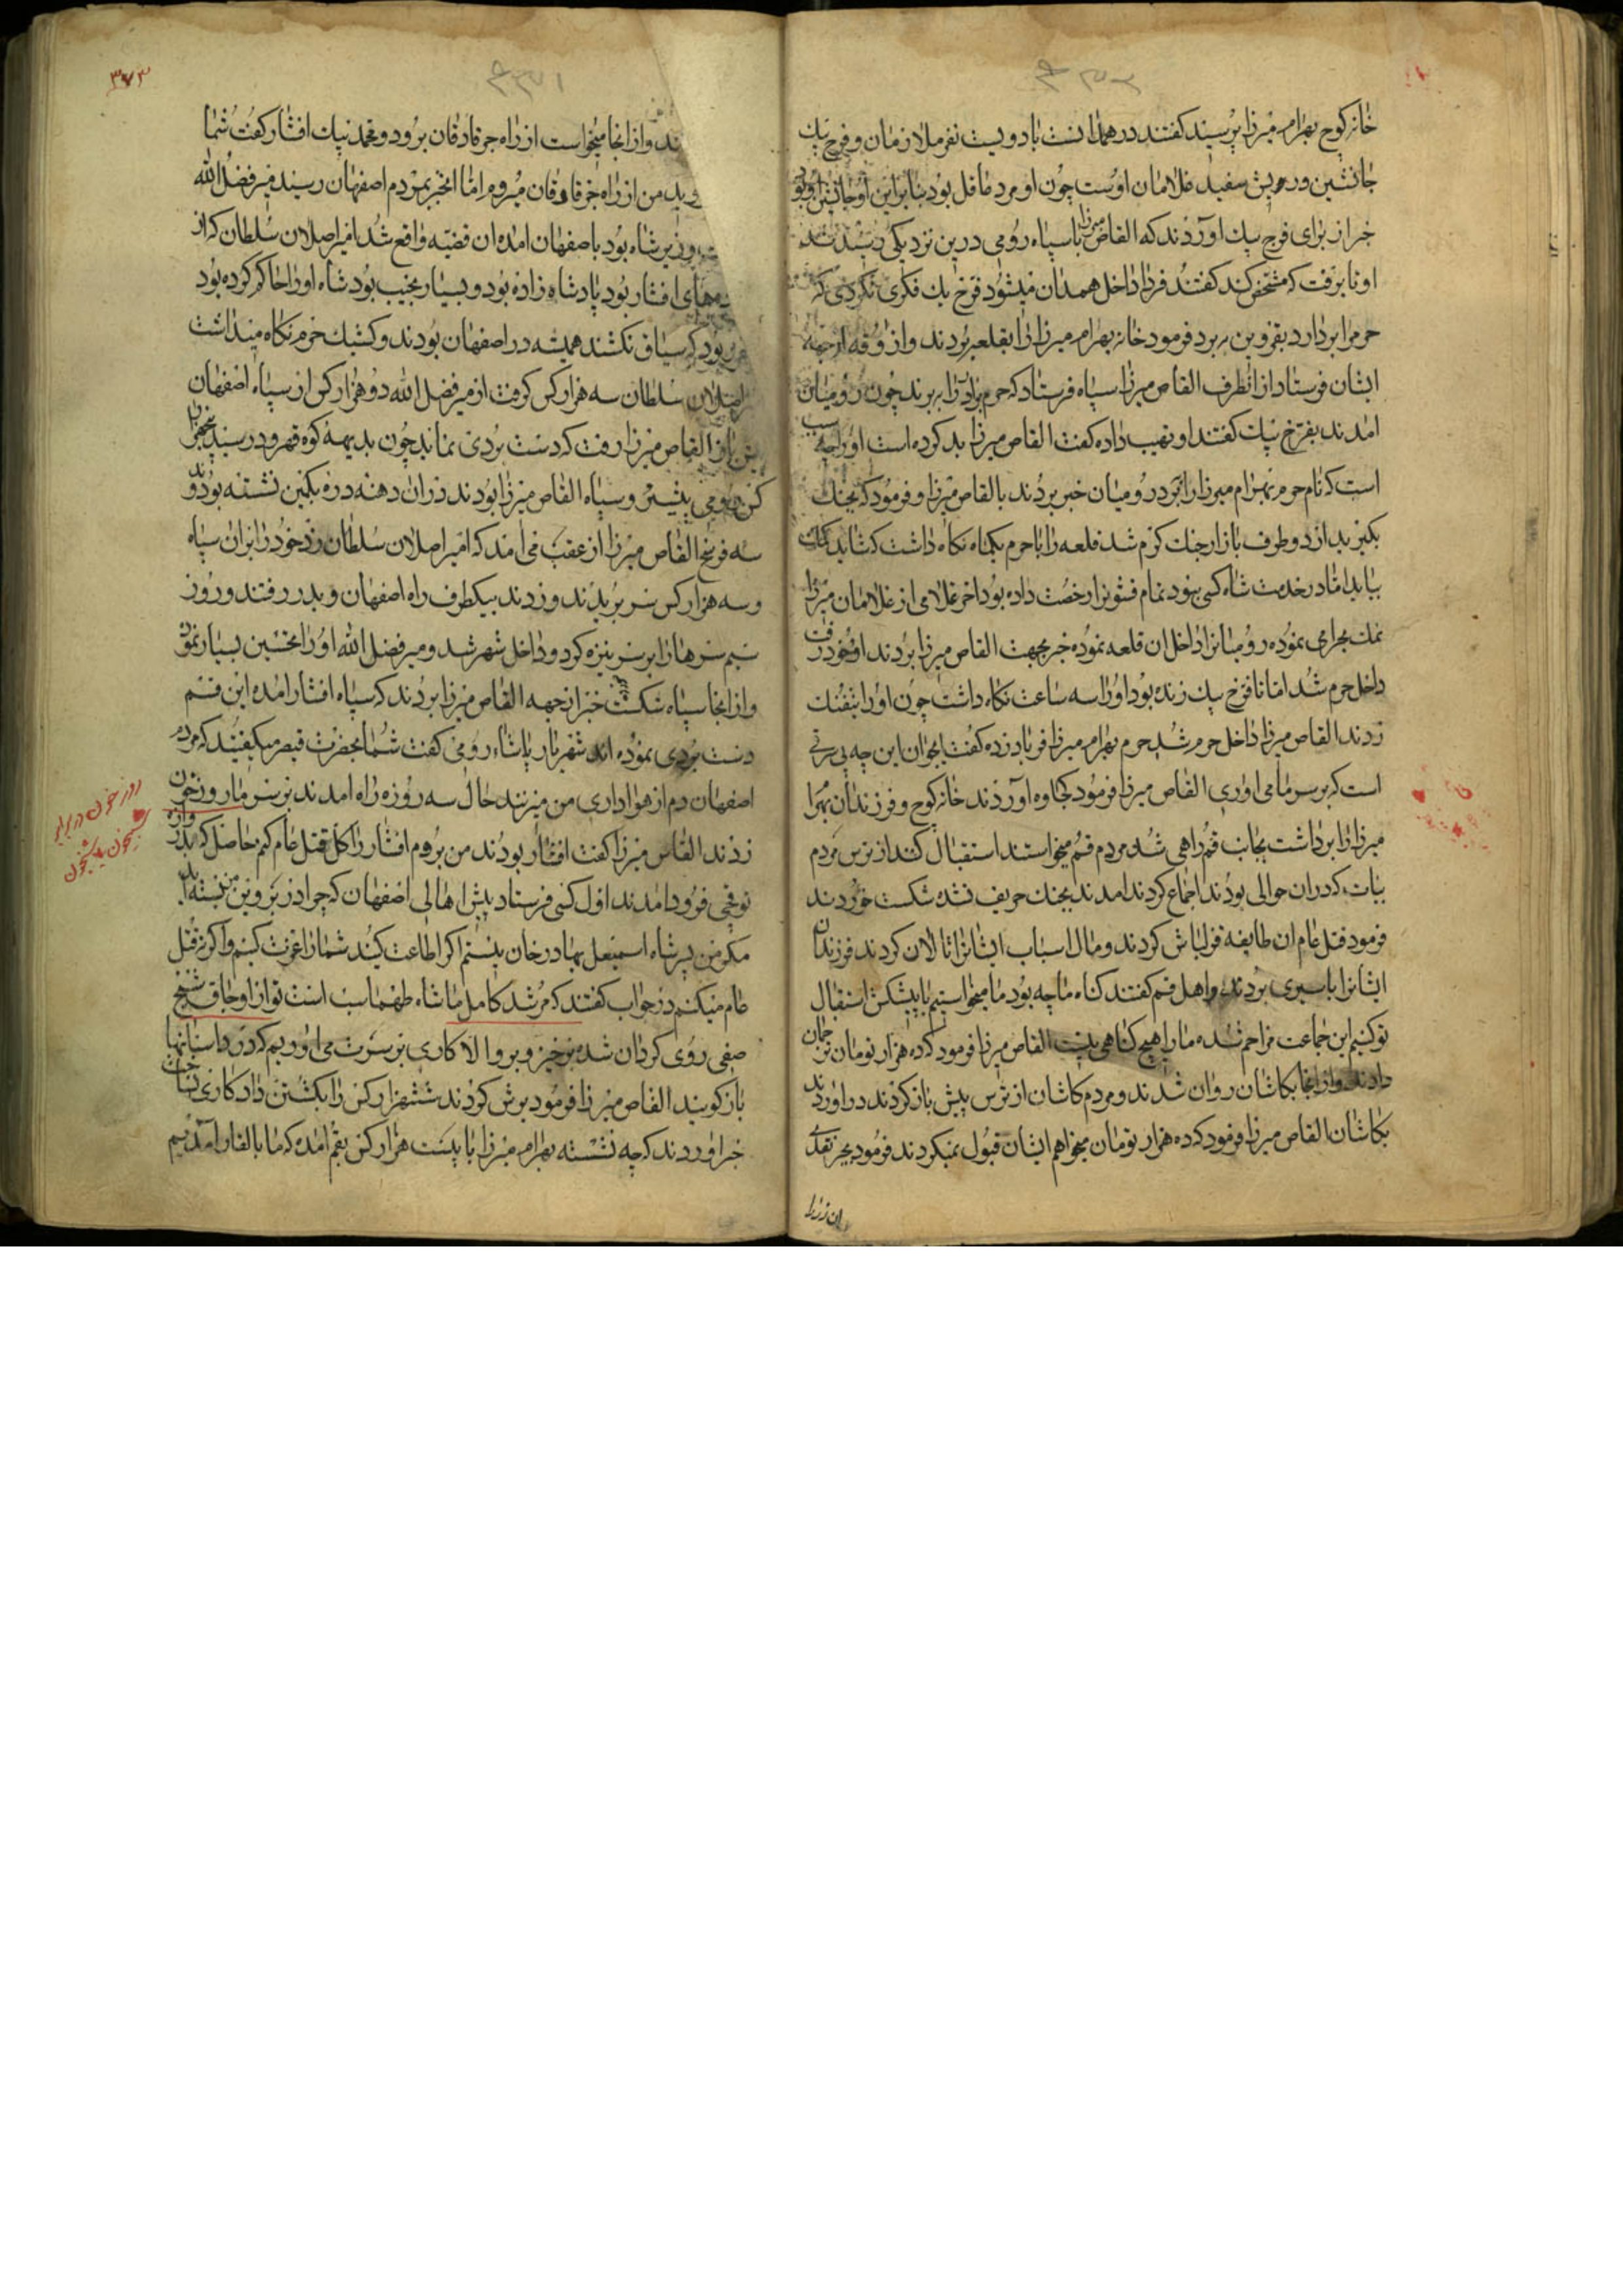 خانه کوچ بهرام میرزا پرسید گفتند در همدانست با دویست نفر ملازمان و فرخ بیک
جانشین و ریش سفید غلامان اوست چون او مرد عاقل بود بنابراین او جانشین او بود
خبر از برای فرخ بیک آوردند که القاص میرزا با سپاه رومی درین نزدیکی رسیدند
او تا برفت که مشخص کند گفتند فردا داخل همدان میشود فرخ بیک فکری نکردی که
حرم را بردارد بقزوین برد فرمود خانه بهرام میرزا را بقلعه بردند و آذوقه از جهة
ایشان فرستاد از انطرف القاص میرزا سپاه فرستاد که حرم برادر را ببرند چون رومیان
امدند بفرخ بیک گفتند او نهیب داده گفت القاص میرزا بد کرده است او را چه سبب
است که نام حرم بهرام میرزا را برد رومیان خبر بردند بالقاص میرزا و فرمود که بجنک
بکیرید از دو طرف بازار جنک کرم شد قلعه را با حرم یکماه نکاه داشت که شاید کمک
بیاید اما در خدمت شاه کسی نبود تمام قشونرا رخصت داده بود اخر غلامی از غلامان میرزا
نمک بحرامی نموده رومیانرا داخل ان قلعه نموده خبر بجهت القاص میرزا بردند او خود رفت
داخل حرم شد اما تا فرخ بیک زنده بود او را سه ساعت نکاه داشت چون او را بتفنک
زدند القاص میرزا داخل حرم شد حرم بهرام میرزا فریاد زده گفت ایجوان این چه بی حرمتی
است که بر سر ما می اوری القاص میرزا فرمود کجاوه آوردند خانه کوچ و فرزندان بهرام
میرزا را برداشت بجانب قم راهی شد مردم قم میخواستند استقبال کنند از ترس مردم
بیات که دران حوالی بودند اجماع کردند امدند بجنک حریف نشده شکست خوردند
فرمود قتل عام ان طایفه قزلباش کردند و مال اسباب ایشانرا تالان کردند فرزندان
ایشانرا باسیری بردند و اهل قم گفتند کناه ما چه بود ما میخواستیم با پیشکش استقبال
تو کنیم این جماعت مزاحم شده ما را هیچ کناهی نیست القاص میرزا فرمود که ده هزار تومان ترجمان
دادند و از انجا بکاشان روان شدند و مردم کاشان از ترس پیش باز کردند در اوردند
بکاشان القاص میرزا فرمود که ده هزار تومان میخواهم ایشان قبول نمیکردند فرمود بجز نقدی
ان زر را
۳۷۳
ند و از انجا میخواست از راه جرفادقان برود و محمد بیک افشار گفت شما
وید من از راه جرفادقان میروم اما انخبر بمردم اصفهان رسید میر فضل الله
وزیر شاه بود باصفهان امده ان قضیه واقع شد امیر اصلان سلطان که از
های افشار بود پادشاه زاده بود و بسیار نجیب بود شاه او را حاکم کرده بود
بود که سیاق نکشند همیشه در اصفهان بودند و کشیک حرم نکاه میداشت
اصلان سلطان سه هزار کس کرفت از میر فضل الله دو هزار کس از سپاه اصفهان
القاص میرزا رفت که دست بردی نماید چون بدیهه کوه قهرود رسید پنجهزار
کس رومی پیشتر و سپاه القاص میرزا بودند دران دهنه دره بکمین نشسته بودند و
سه فرسخ القاص میرزا از عقب می امد که امیر اصلان سلطان زد خود را بران سپاه
و سه هزار کس سر بریدند و زدند بیکطرف راه اصفهان و بدر رفتند و روز
سیم سرها را بر سر نیزه کرد و داخل شهر شد و میر فضل الله او را تحسین بسیار نمود
و از انجا سپاه شکست خورده خبر از جهه القاص میرزا بردند که سپاه افشار امده این قسم
دست بردی نموده اند شهریار پاشاء رومی گفت شما بحضرت قیصر میکفتید که مردم
اصفهان دم از هواداری من میزنند حال سه روزه راه امدند بر سر ما روز خون
زدند القاص میرزا گفت افشار بودند من بروم افشار را کل قتل عام کنم حاصل که بدروازه
توقچی فرود امدند اول کسی فرستاد پیش اهالی اصفهان که چرا در بر روی من بسته اید
مکر من پسر شاه اسمیعل بهادر خان نیستم اکر اطاعت کنید شما را عزت کنم و اکر نه قتل
عام میکنم در جواب گفتند که مرشد کامل ما شاه طهماسب است تو از اوجاق شیخ
صفی روی کردان شده برخیز و برو الا کاری بر سرت می اوریم که در داستانها
باز کویند القاص میرزا فرمود یورش کردند ششهزار کس را بکشتن داد کاری نساخت
خبر اوردند که چه نشسته بهرام میرزا با بیست هزار کس بقم امده که ما بالغار آمدیم
روز خون در برابر
شبخون